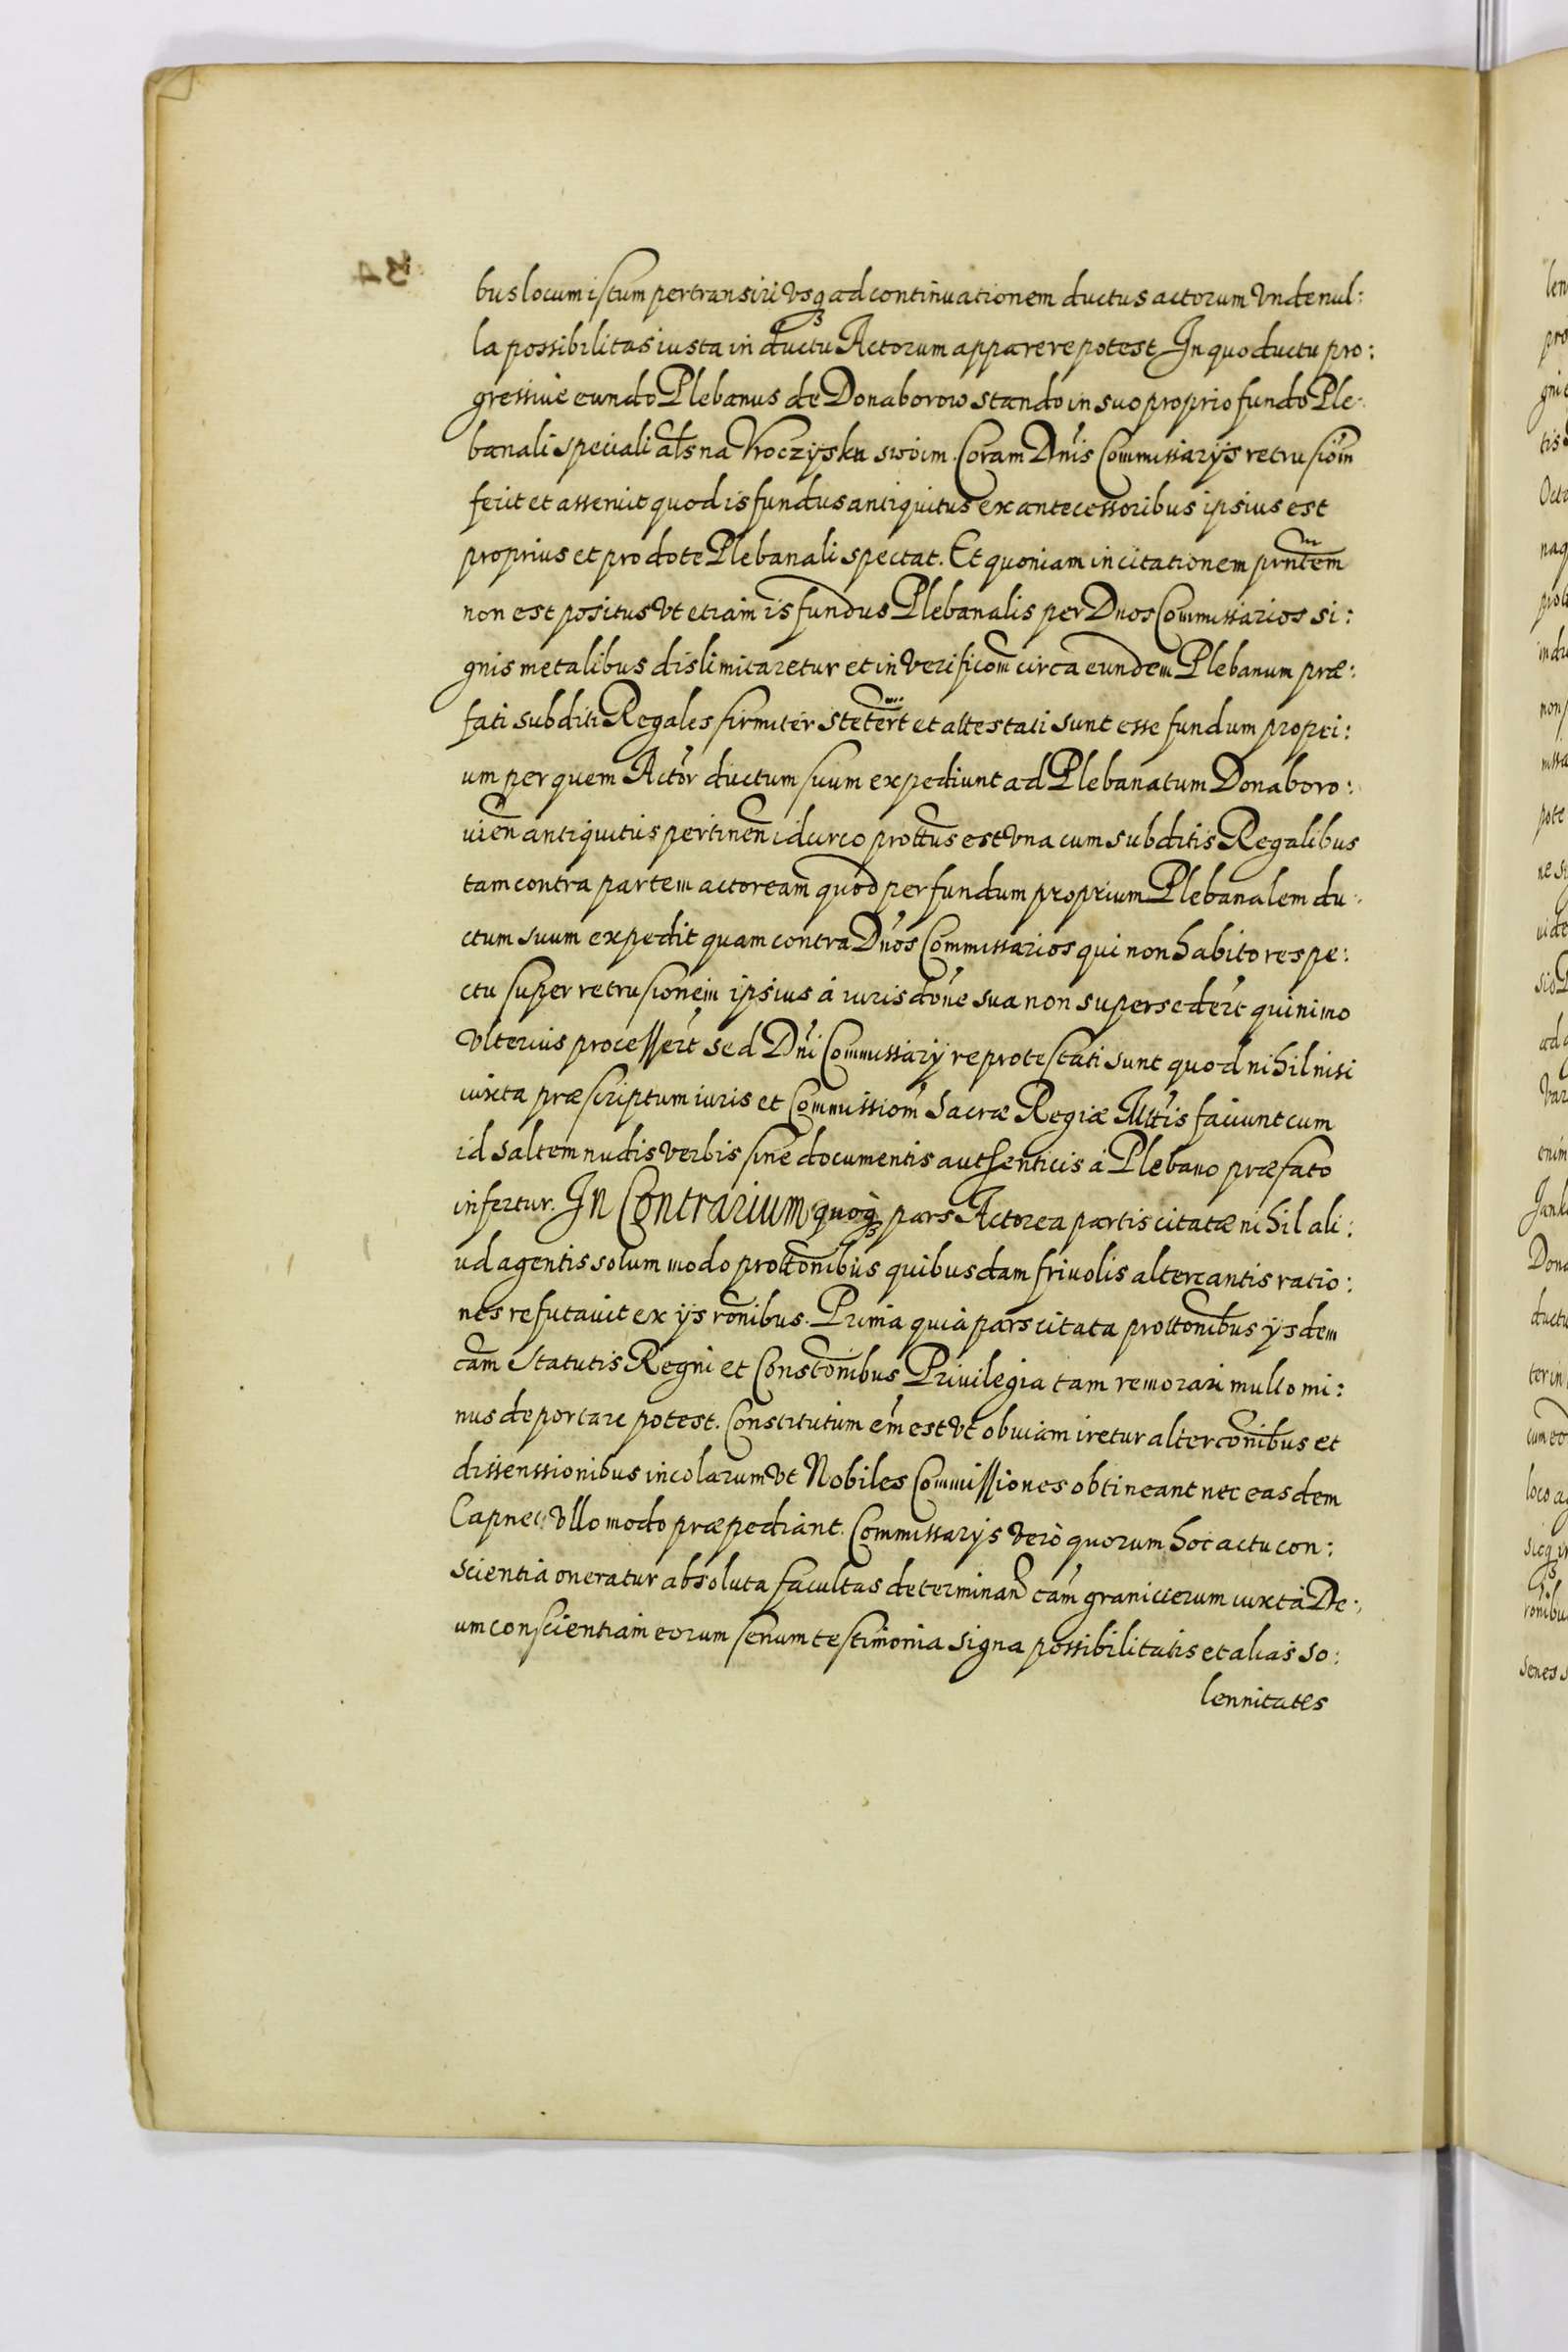 bus locum istum pertransiri vsq₃ ad continuationem ductus actorum Vnde nul:
la possibilitas iusta in ductu Actorum apparere potest In quo ductu pro:
gressive eundo Plebanus de Donaborow stando in suo proprio fundo Ple
banali speciali als na Vroczysku swoim. Coram Dnis Commissarijs retrusiom
fecit et asseruit quod is fundus antiquitus ex antecessoribus ipsius est
proprius et pro dote Plebanali spectat. Et quoniam in citationem prntem
non est positus Vt etiam is fundus Plebanalis per Dnos Commissarios si:
gnis metalibus dislimitaretur et in verificom circa eundem Plebanum præ:
fati subditi Regales firmiter stetert et attestati sunt esse fundum propri:
um per quem Actor ductum suum expediunt ad Plebanatum Donaboro:
uien antiquitus pertinen idcirco prottus est Vna cum subditis Regalibus
tam contra partem actoream quod per fundum proprium Plebanalem du
ctum suum expedit quam contra Dnos Commissarios qui non habito respe:
ctu super retrusionem ipsius à iurisdone sua non supersedert quinimo
Vlterius processert sed Dni Commissarij reprotestati sunt quod nihil nisi
iuxta præscriptum iuris et Commissiom Sacræ Regiæ Mttis faciunt cum
id saltem nudis Verbis sine documentis authenticis à Plebano præfato
infertur. In Contrarium quoq₃ pars Actorea partis citatæ nihil ali:
ud agentis solum modo prottonibus quibusdam friuolis altercantis ratio:
nes refutauit ex ijs ronibus. Prima quia pars citata prottonibus ijsdem
cam Statutis Regni et Constonibus Priuilegia tam remorari multo mi:
nus deportare potest. Constitutum em est Vt obuiam iretur alterconibus et
dissenssionibus incolarum Vt Nobiles Commissiones obtineant nec easdem
Capnei Vllo modo præpediant. Commissarijs Vero quorum hoc actu con:
scientia oneratur absoluta facultas determinan cam granicierum iuxta De:
um conscientiam eorum senum testimonia signa possibilitatis et alias so:
lennitates